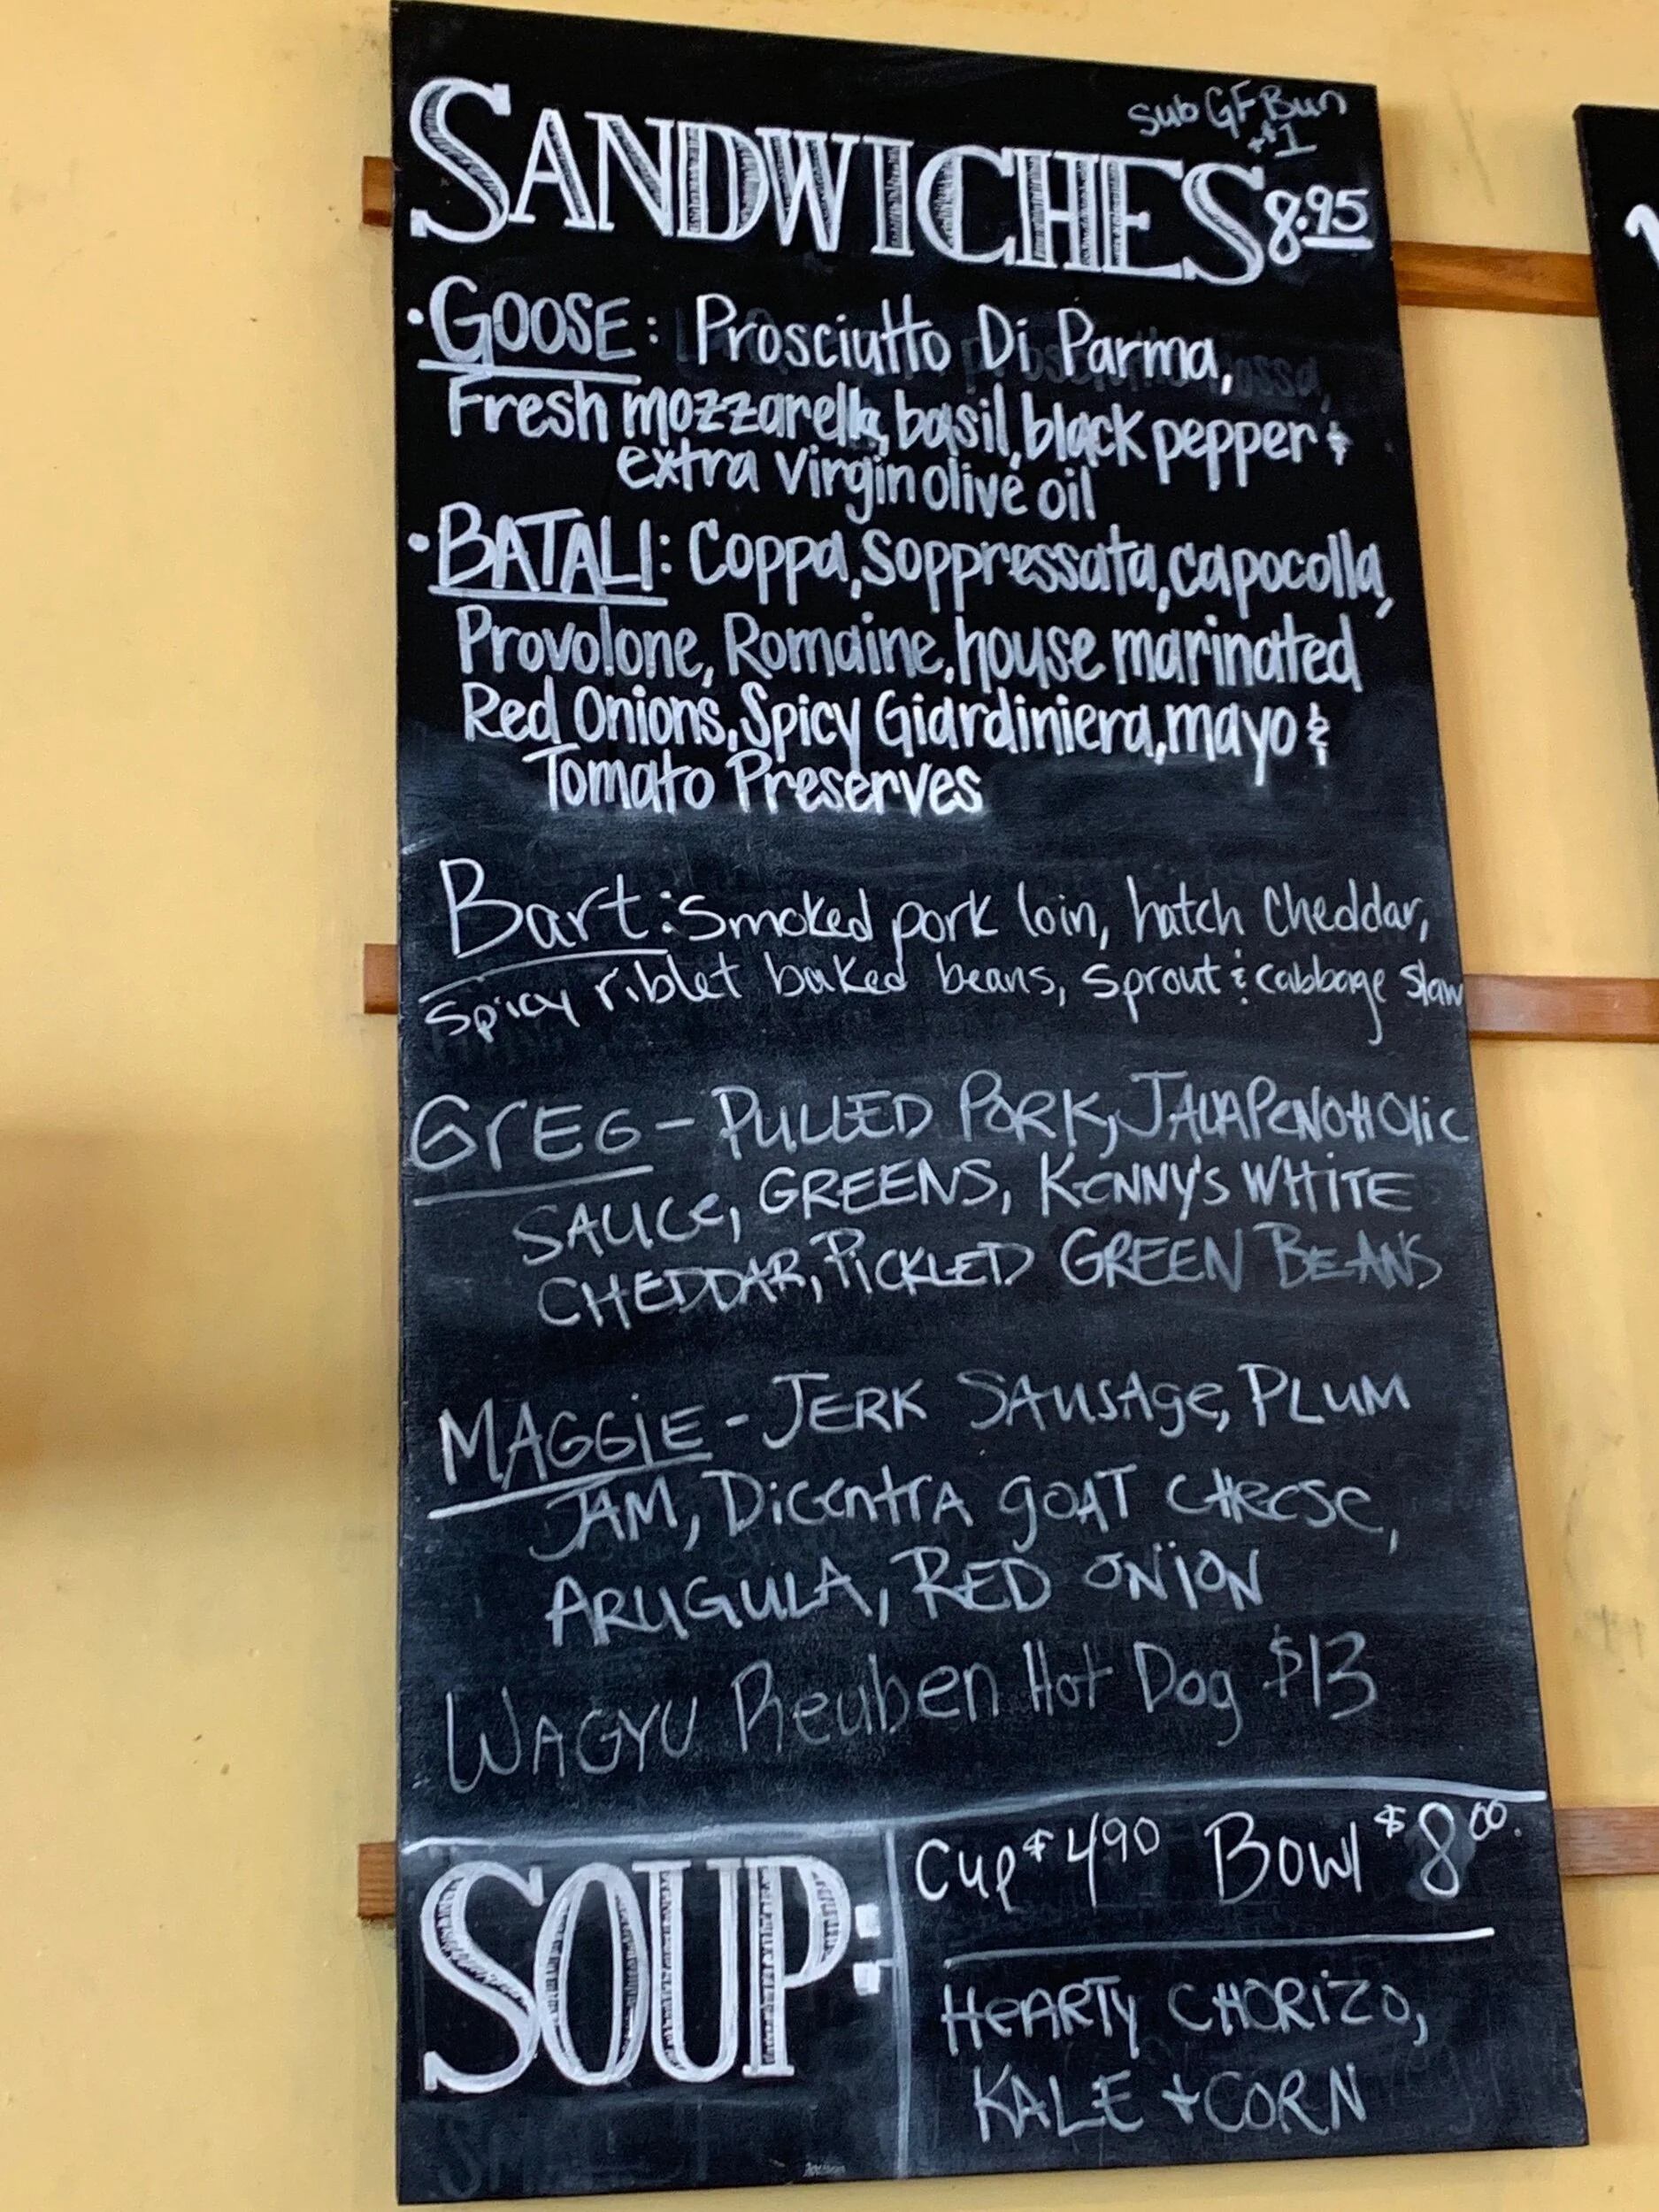 Sub GF Bun
+$1
SANDWICHES 8.95
• GOOSE: Prosciutto Di Parma,
Fresh mozzarella, basil, black pepper &
extra virgin olive oil
• BATALI: Coppa, Soppressata, capocolla,
Provolone, Romaine, house marinated
Red Onions, Spicy Giardiniera, mayo &
Tomato Preserves
Bart: Smoked pork loin, hatch cheddar,
spicy riblet baked beans, sprout & cabbage slaw
GrEG - PULLED PORK, JALAPENOHOlic
SAUCe, GREENS, KENNY'S WHiTE
CHEDDAR, PiCKLED GREEN BEANS
MAGGiE - JERK SAUSAge, PLUM
JAM, DicentrA gOAT CHeeSe,
ARUGULA, RED ONiON
WAGYU Reuben Hot Dog $13
SOUP:
Cup $4.90 Bowl $8.00
HeARTy CHORiZO,
KALE + CORN